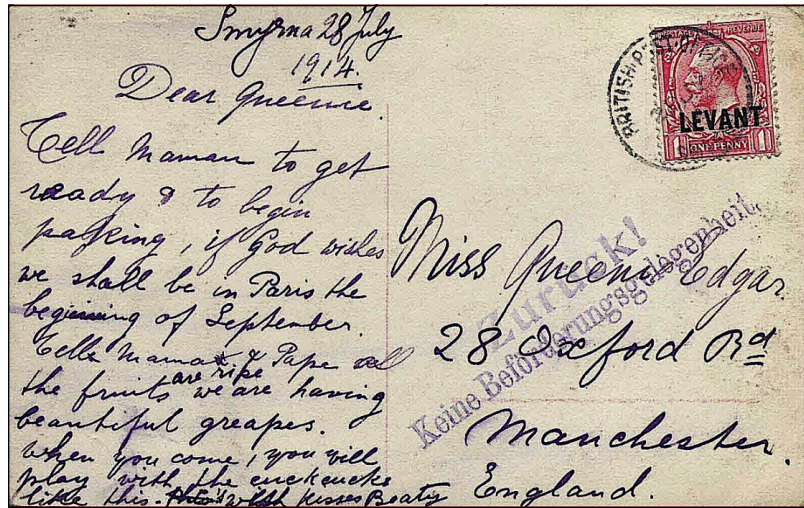 Smyrna 28 July
1914.
Dear Queenie.
Tell Maman to get
ready & to begin
packing, if God wishes
we shall be in Paris the
begining of September.
Telle Maman & Pape all
the fruits are ripe we are having
beautiful greapes.
when you come, you will
play with the
like this. with kisses Beaty
BRITISH POST OFFICE
POSTAGE REVENUE
LEVANT
1 ONE PENNY 1
Zurück!
Keine Beförderungsgelegenheit.
Miss Queenie Edgar.
28 Oxford Rd
Manchester.
England.